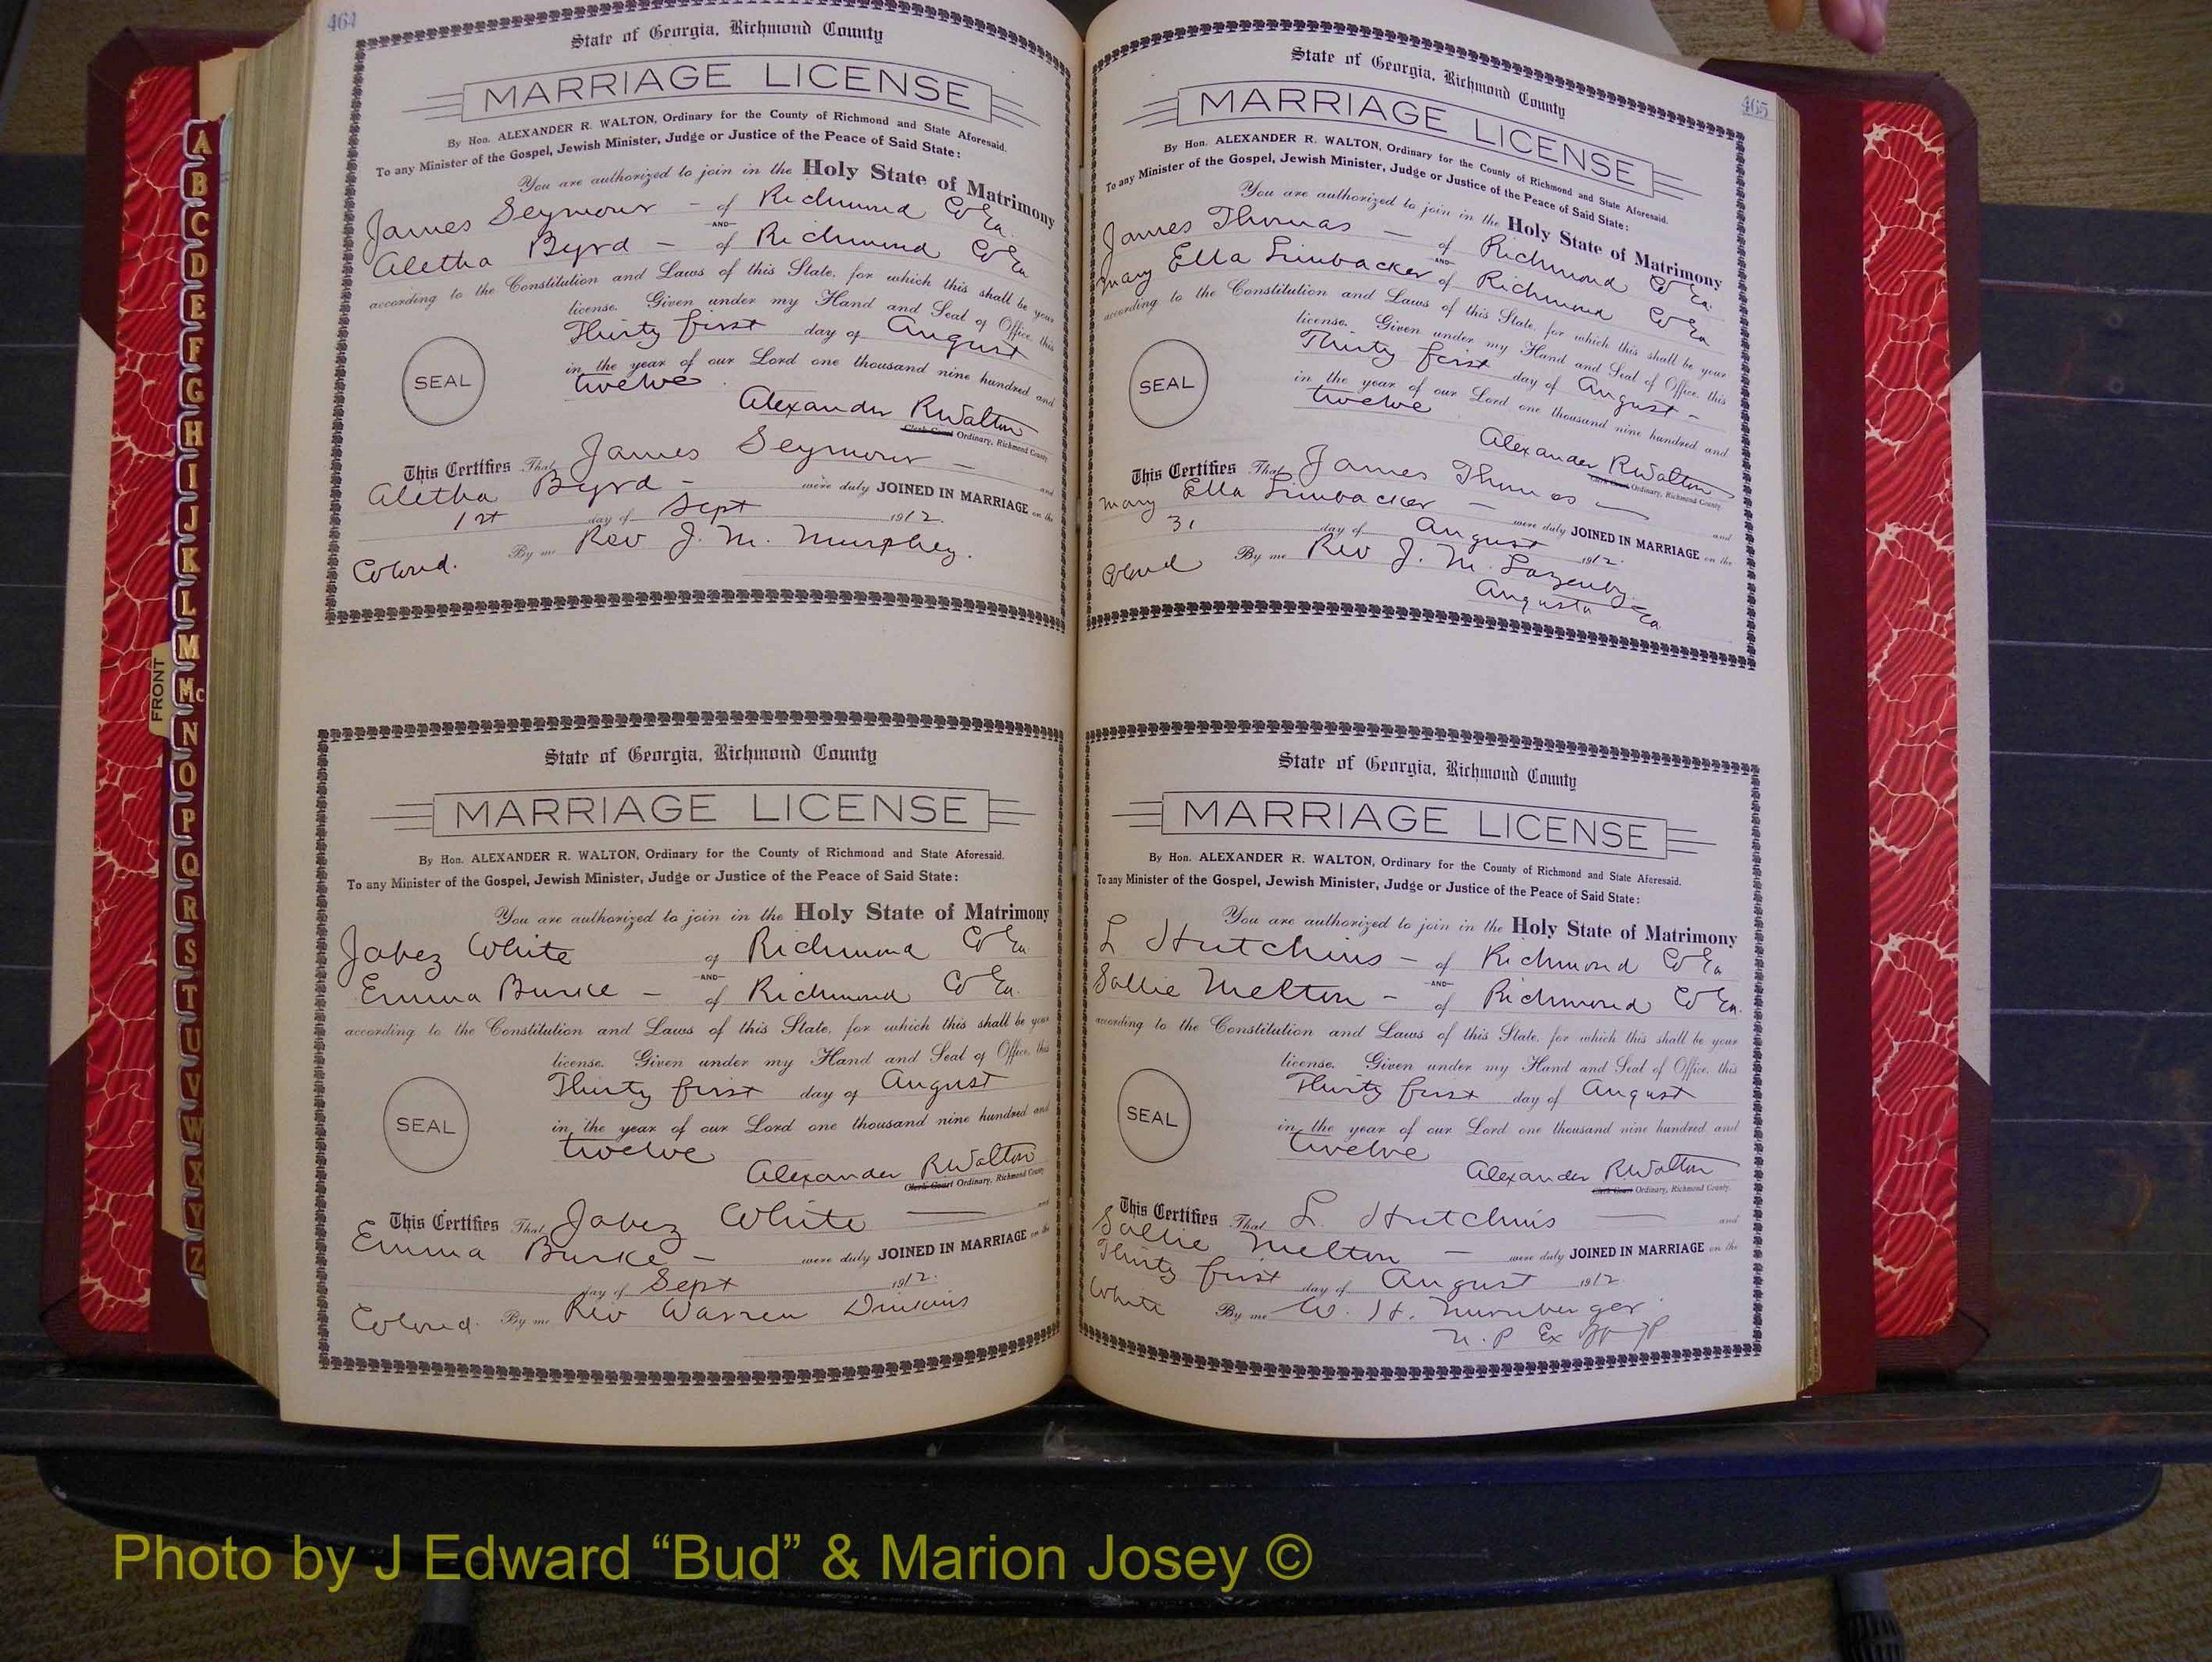 464
State of Georgia, Richmond County
MARRIAGE LICENSE
By Hon. ALEXANDER R. WALTON, Ordinary for the County of Richmond and State Aforesaid.
To any Minister of the Gospel, Jewish Minister, Judge or Justice of the Peace of Said State:
You are authorized to join in the Holy State of Matrimony
James Seymour - of Richmond Co Ga.
AND
Aletha Byrd - of Richmond Co Ga
according to the Constitution and Laws of this State, for which this shall be your
license. Given under my Hand and Seal of Office, this
Thirty first day of August
in the year of our Lord one thousand nine hundred and
twelve
SEAL
Alexander R Walton
Clerk Court Ordinary, Richmond County
This Certifies That James Seymour - and
Aletha Byrd - were duly JOINED IN MARRIAGE on the
1st day of Sept 1912.
Colored. By me Rev J. M. Murphey.
State of Georgia, Richmond County
MARRIAGE LICENSE
By Hon. ALEXANDER R. WALTON, Ordinary for the County of Richmond and State Aforesaid.
To any Minister of the Gospel, Jewish Minister, Judge or Justice of the Peace of Said State:
You are authorized to join in the Holy State of Matrimony
Jabez White of Richmond Co Ga
AND
Emma Burke - of Richmond Co Ga.
according to the Constitution and Laws of this State, for which this shall be your
license. Given under my Hand and Seal of Office, this
Thirty first day of August
in the year of our Lord one thousand nine hundred and
twelve
SEAL
Alexander R Walton
Clerk Court Ordinary, Richmond County
This Certifies That Jabez White and
Emma Burke - were duly JOINED IN MARRIAGE on the
day of Sept 1912.
Colored. By me Rev Warren 
465
State of Georgia, Richmond County
MARRIAGE LICENSE
By Hon. ALEXANDER R. WALTON, Ordinary for the County of Richmond and State Aforesaid.
To any Minister of the Gospel, Jewish Minister, Judge or Justice of the Peace of Said State:
You are authorized to join in the Holy State of Matrimony
James Thomas - of Richmond Co Ga.
AND
Mary Ella Limbacker of Richmond Co Ga
according to the Constitution and Laws of this State, for which this shall be your
license. Given under my Hand and Seal of Office, this
Thirty first day of August -
in the year of our Lord one thousand nine hundred and
twelve
SEAL
Alexander R Walton
Clerk Court Ordinary, Richmond County
This Certifies That James Thomas - and
Mary Ella Limbacker - were duly JOINED IN MARRIAGE on the
31 day of August 1912.
Colored By me Rev J. M. Lazenby
Augusta Ga.
State of Georgia, Richmond County
MARRIAGE LICENSE
By Hon. ALEXANDER R. WALTON, Ordinary for the County of Richmond and State Aforesaid.
To any Minister of the Gospel, Jewish Minister, Judge or Justice of the Peace of Said State:
You are authorized to join in the Holy State of Matrimony
L Hutchins - of Richmond Co Ga
AND
Sallie Melton - of Richmond Co Ga.
according to the Constitution and Laws of this State, for which this shall be your
license. Given under my Hand and Seal of Office, this
Thirty first day of August
in the year of our Lord one thousand nine hundred and
twelve
SEAL
Alexander R Walton
Clerk Court Ordinary, Richmond County.
This Certifies That L. Hutchins and
Sallie Melton - were duly JOINED IN MARRIAGE on the
Thirty first day of August 1912
White By me W. H. Nurnberger
N. P Ex Off JP
FRONT
A
B
C
D
E
F
G
H
I
J
K
L
M
Mc
N
O
P
Q
R
S
T
U
V
W
X
Y
Z
Photo by J Edward “Bud” & Marion Josey ©